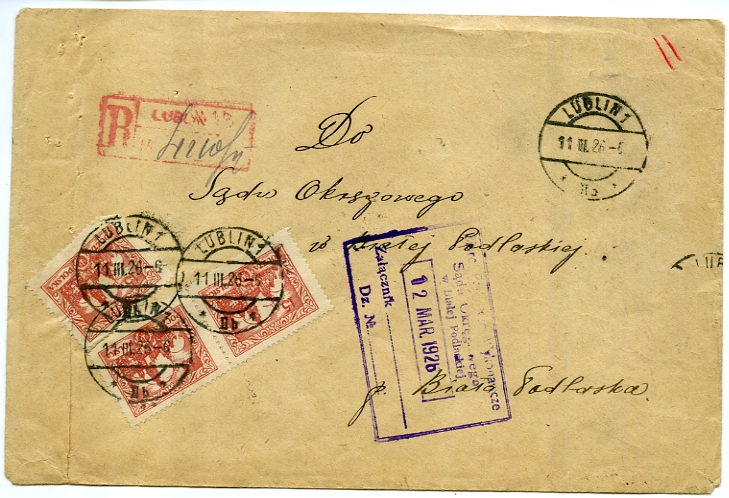 R LUBLIN 1
Do
Sądu Okręgowego
w Białej Podlaskiej
p. Biała Podlaska.
LUBLIN 1
11 III.26-6
* IIb *
LUBLIN 1
11 III.26-6
LUBLIN 1
11 III.26-6
* IIb *
LUBLIN
11 III.26-6
* IIb *
LUB
Sądu Okręgowego
w Białej Podlaskiej
12 MAR 1926
Załącznik
Dz. №